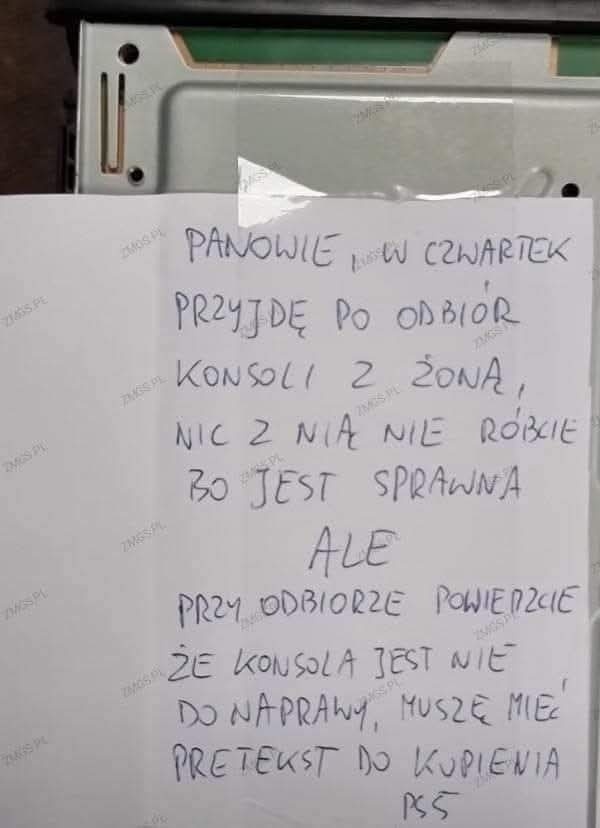 PANOWIE, W CZWARTEK
PRZYJDĘ PO ODBIÓR
KONSOLI Z ŻONĄ,
NIC Z NIĄ NIE RÓBCIE
BO JEST SPRAWNA
ALE
PRZY ODBIORZE POWIEDZCIE
ŻE KONSOLA JEST NIE
DO NAPRAWY, MUSZĘ MIEĆ
PRETEKST DO KUPIENIA
PS5
ZMGS.PL